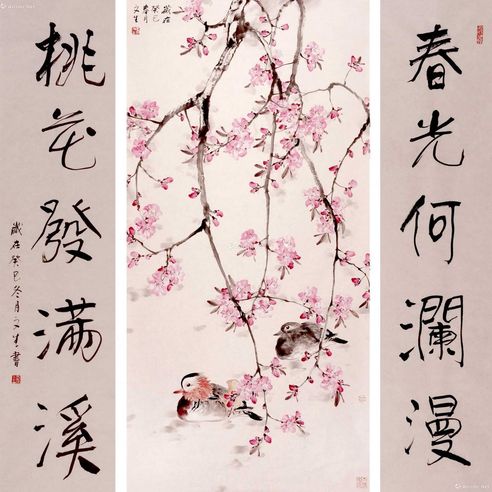 春光何瀾漫
桃花發滿溪
歲在癸巳冬月文生書
歲在
癸巳
春月
文生